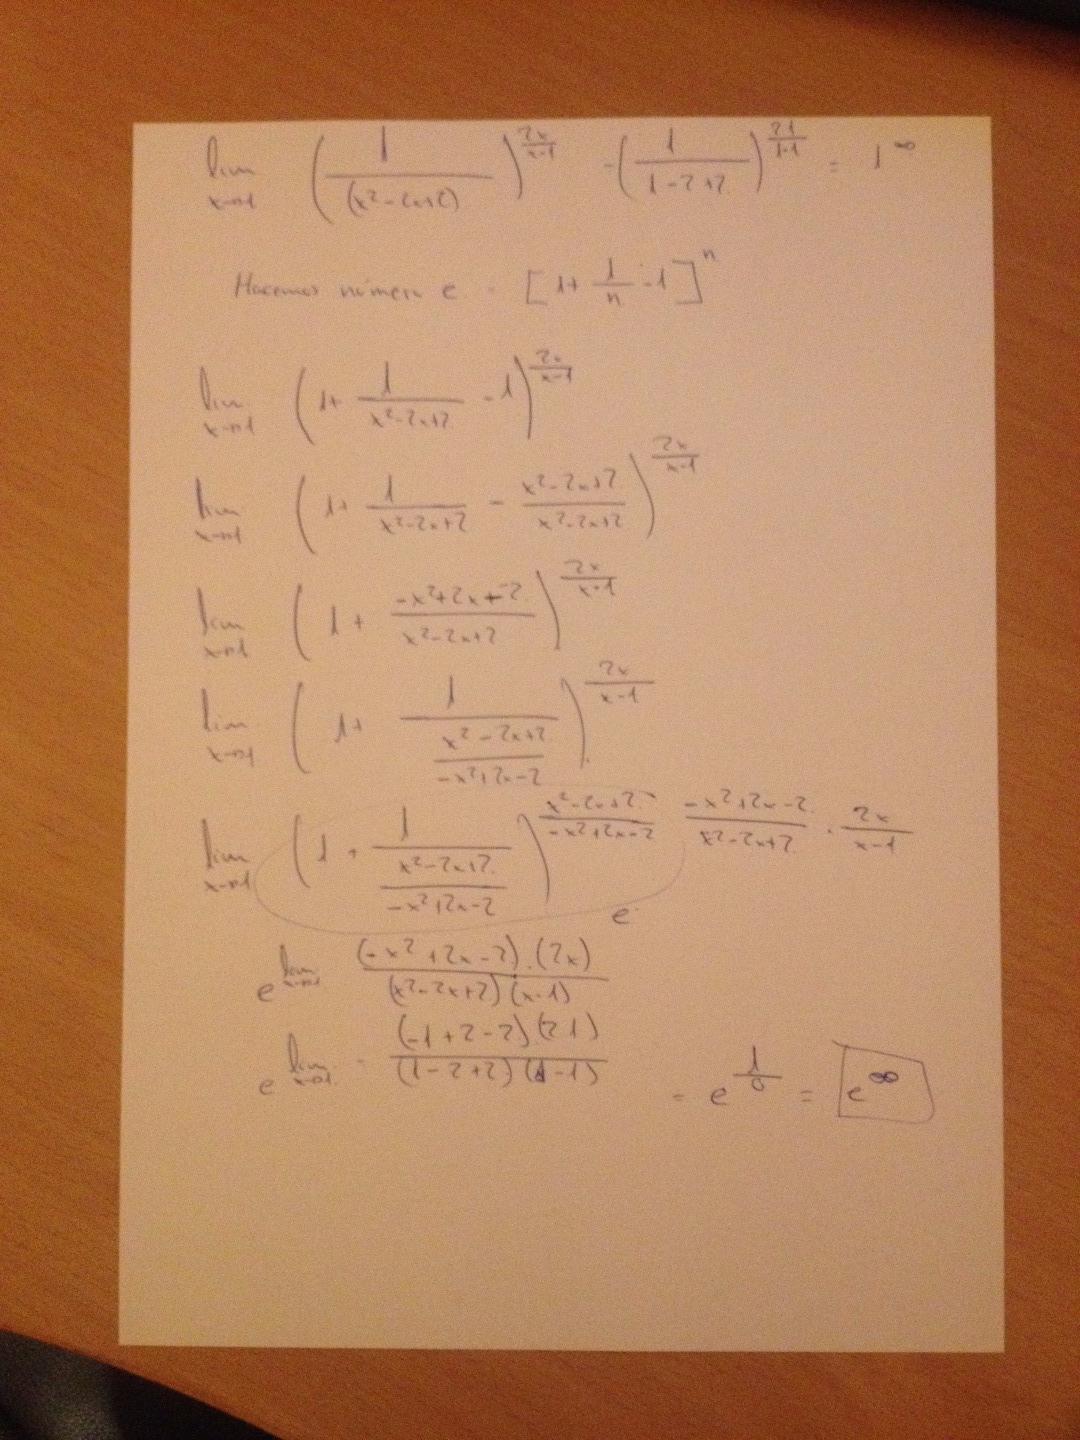 lim x→1 (1/(x²-2x+2))^(2x/(x-1)) - (1/(1-2+2))^(2·1/(1-1)) = 1^∞
Hacemos número e = [1+ 1/n -1]^n
lim x→1 (1+ 1/(x²-2x+2) -1)^(2x/(x-1))
lim x→1 (1+ 1/(x²-2x+2) - (x²-2x+2)/(x²-2x+2))^(2x/(x-1))
lim x→1 (1+ (-x²+2x+-2)/(x²-2x+2))^(2x/(x-1))
lim x→1 (1+ 1/((x²-2x+2)/(-x²+2x-2)))^(2x/(x-1))
lim x→1 (1+ 1/((x²-2x+2)/(-x²+2x-2)))^((x²-2x+2)/(-x²+2x-2) (-x²+2x-2)/(x²-2x+2) · 2x/(x-1))
e
e^(lim x→1 ((-x²+2x-2)·(2x))/((x²-2x+2)(x-1)))
e^(lim x→1 - ((-1+2-2)(2·1))/((1-2+2)(1-1))) = e^(1/0) = e^∞